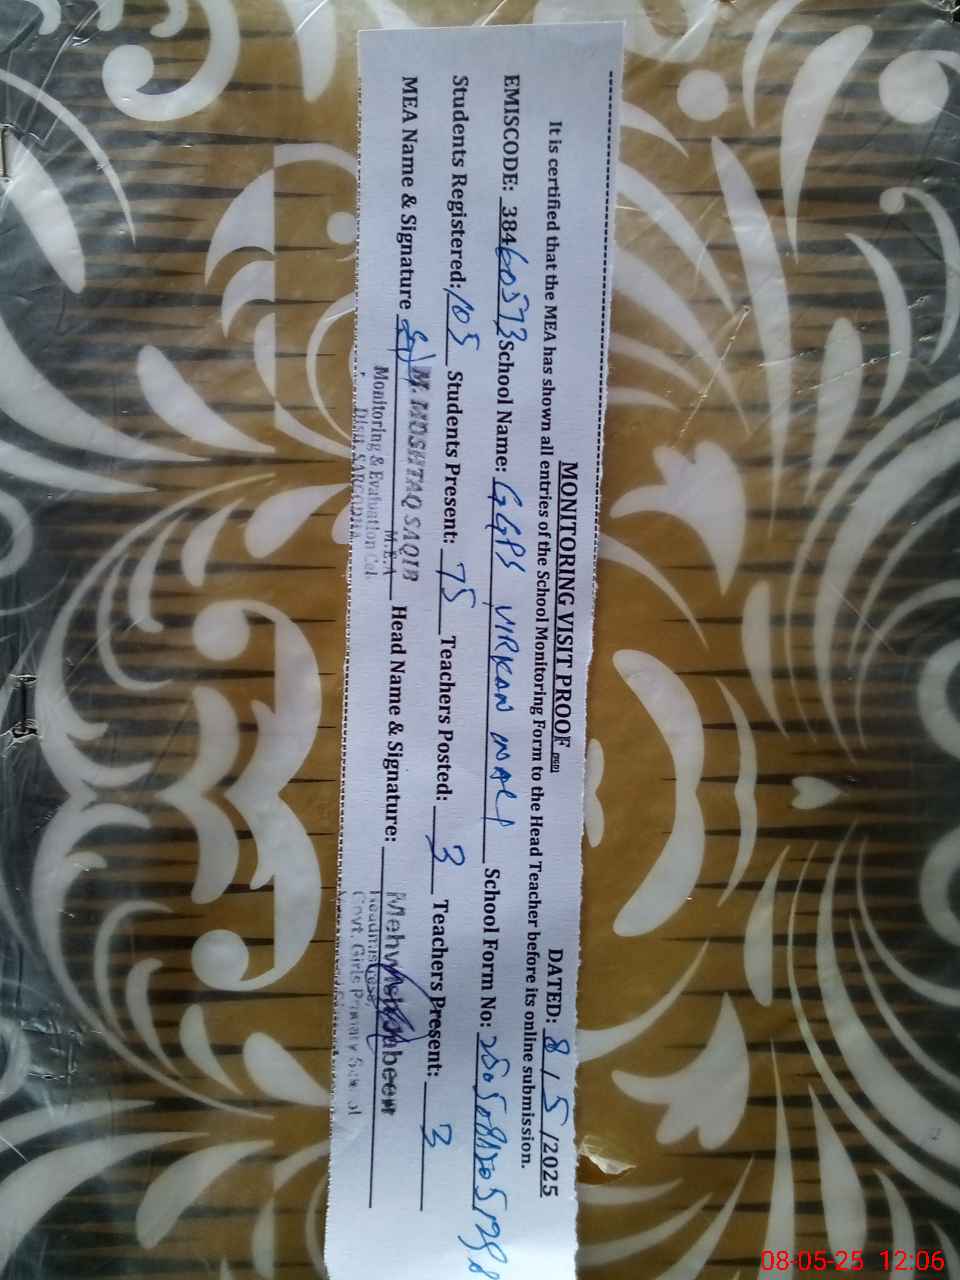 MONITORING VISIT PROOF DATED: 8/5/2025
It is certified that the MEA has shown all entries of the School Monitoring Form to the Head Teacher before its online submission.
EMISCODE: 38460573 School Name: GGPS VIRKAN WALI School Form No:
Students Registered: 105 Students Present: 75 Teachers Posted: 3 Teachers Present: 3
MEA Name & Signature M. MUSHTAQ SAQIB Head Name & Signature:
M.E.A
Monitoring & Evaluation Cell
Distt. SARGODHA
Headmistress,
Govt. Girls Primary School
08-05-25 12:06